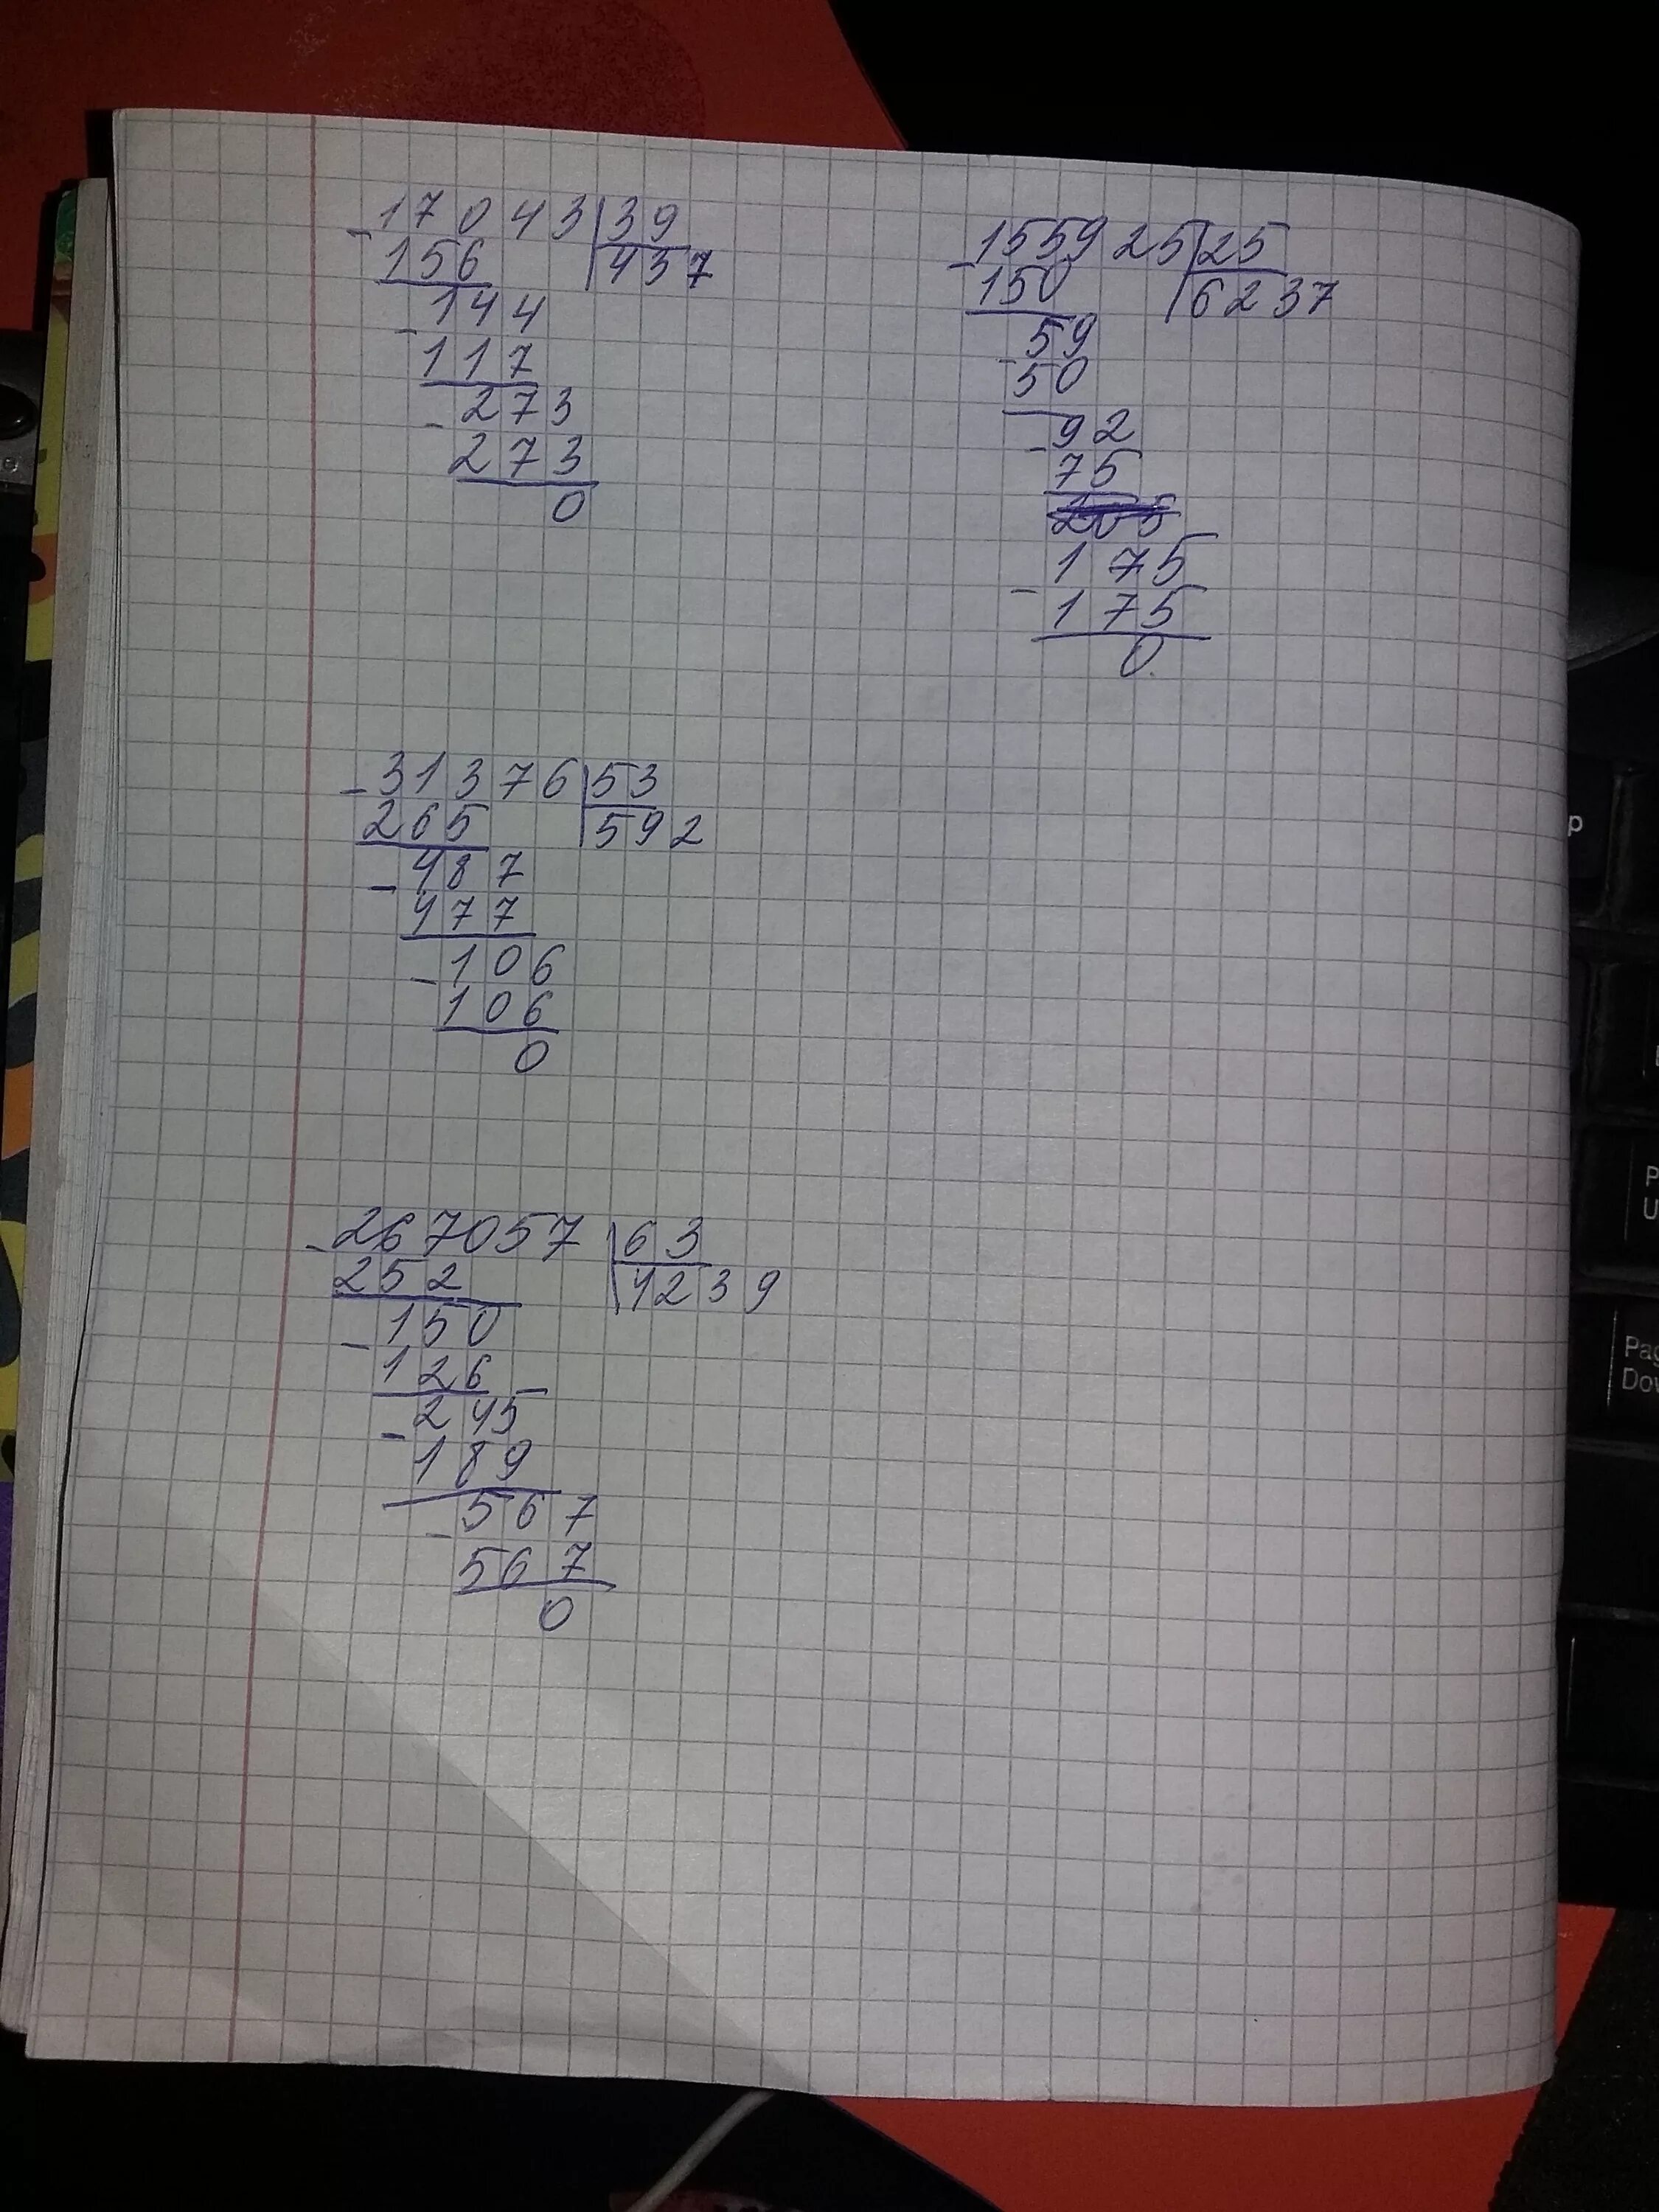 - 17043 | 39
156 | 437
- 144
117
- 273
273
0
- 155925 | 25
150 | 6237
- 59
50
- 92
75
175
- 175
0
- 31376 | 53
265 | 592
- 487
477
- 106
106
0
- 267057 | 63
252 | 4239
- 150
126
- 245
189
- 567
567
0
P